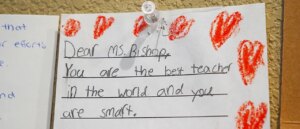 that
efforts
Dear Ms. Bishop,
You are the best teacher
in the world and you
are smart.